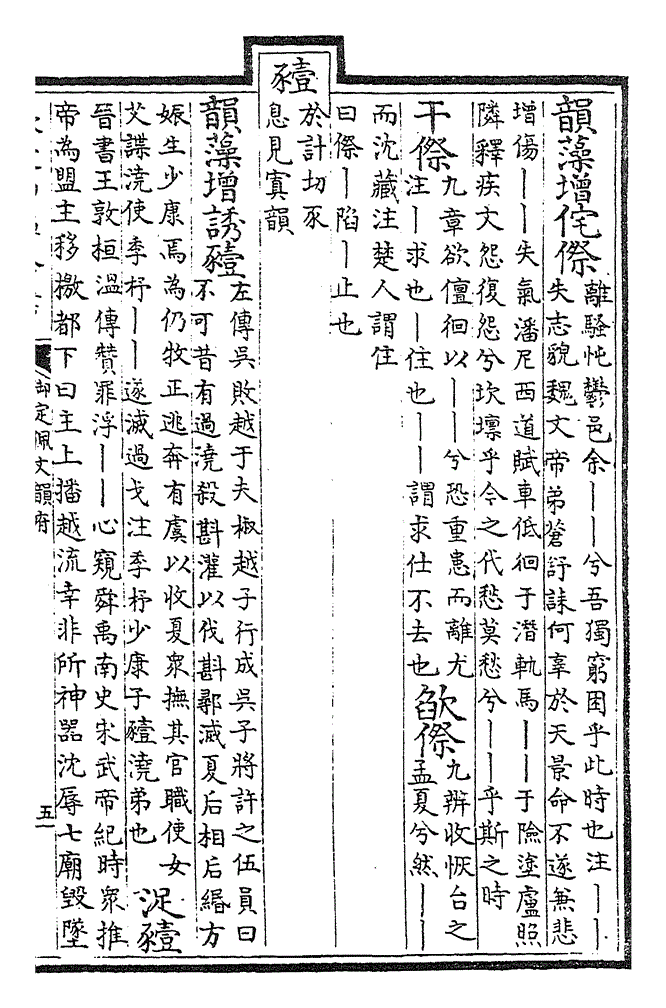 韻藻增侘傺離騷忳鬱邑余丨丨兮吾獨窮困乎此時也注丨丨
失志貌魏文帝弟蒼舒誄何辜於天景命不遂兼悲
增傷丨丨失氣潘尼西道賦車低徊于潛軌馬丨丨于險塗盧照
隣釋疾文怨復怨兮坎壈乎今之代愁莫愁兮丨丨乎斯之時
干傺九章欲儃徊以丨丨兮恐重患而離尤
注丨求也丨住也丨丨謂求仕不去也
欿傺九辨收恢台之
孟夏兮然丨丨
而沈藏注楚人謂住
曰傺丨陷丨止也
豷
於計切豕
息見寘韻
韻藻增誘豷左傳吳敗越于夫椒越子行成吳子將許之伍員曰
不可昔有過澆殺斟灌以伐斟鄩滅夏后相后緡方
娠生少康焉為仍牧正逃奔有虞以收夏衆撫其官職使女
艾諜澆使季杼丨丨遂滅過戈注季杼少康子豷澆弟也
浞豷
晉書王敦桓溫傳贊罪浮丨丨心窺舜禹南史宋武帝紀時衆推
帝為盟主移檄都下曰主上播越流幸非所神器沈辱七廟毀墜
御定佩文韻府
五